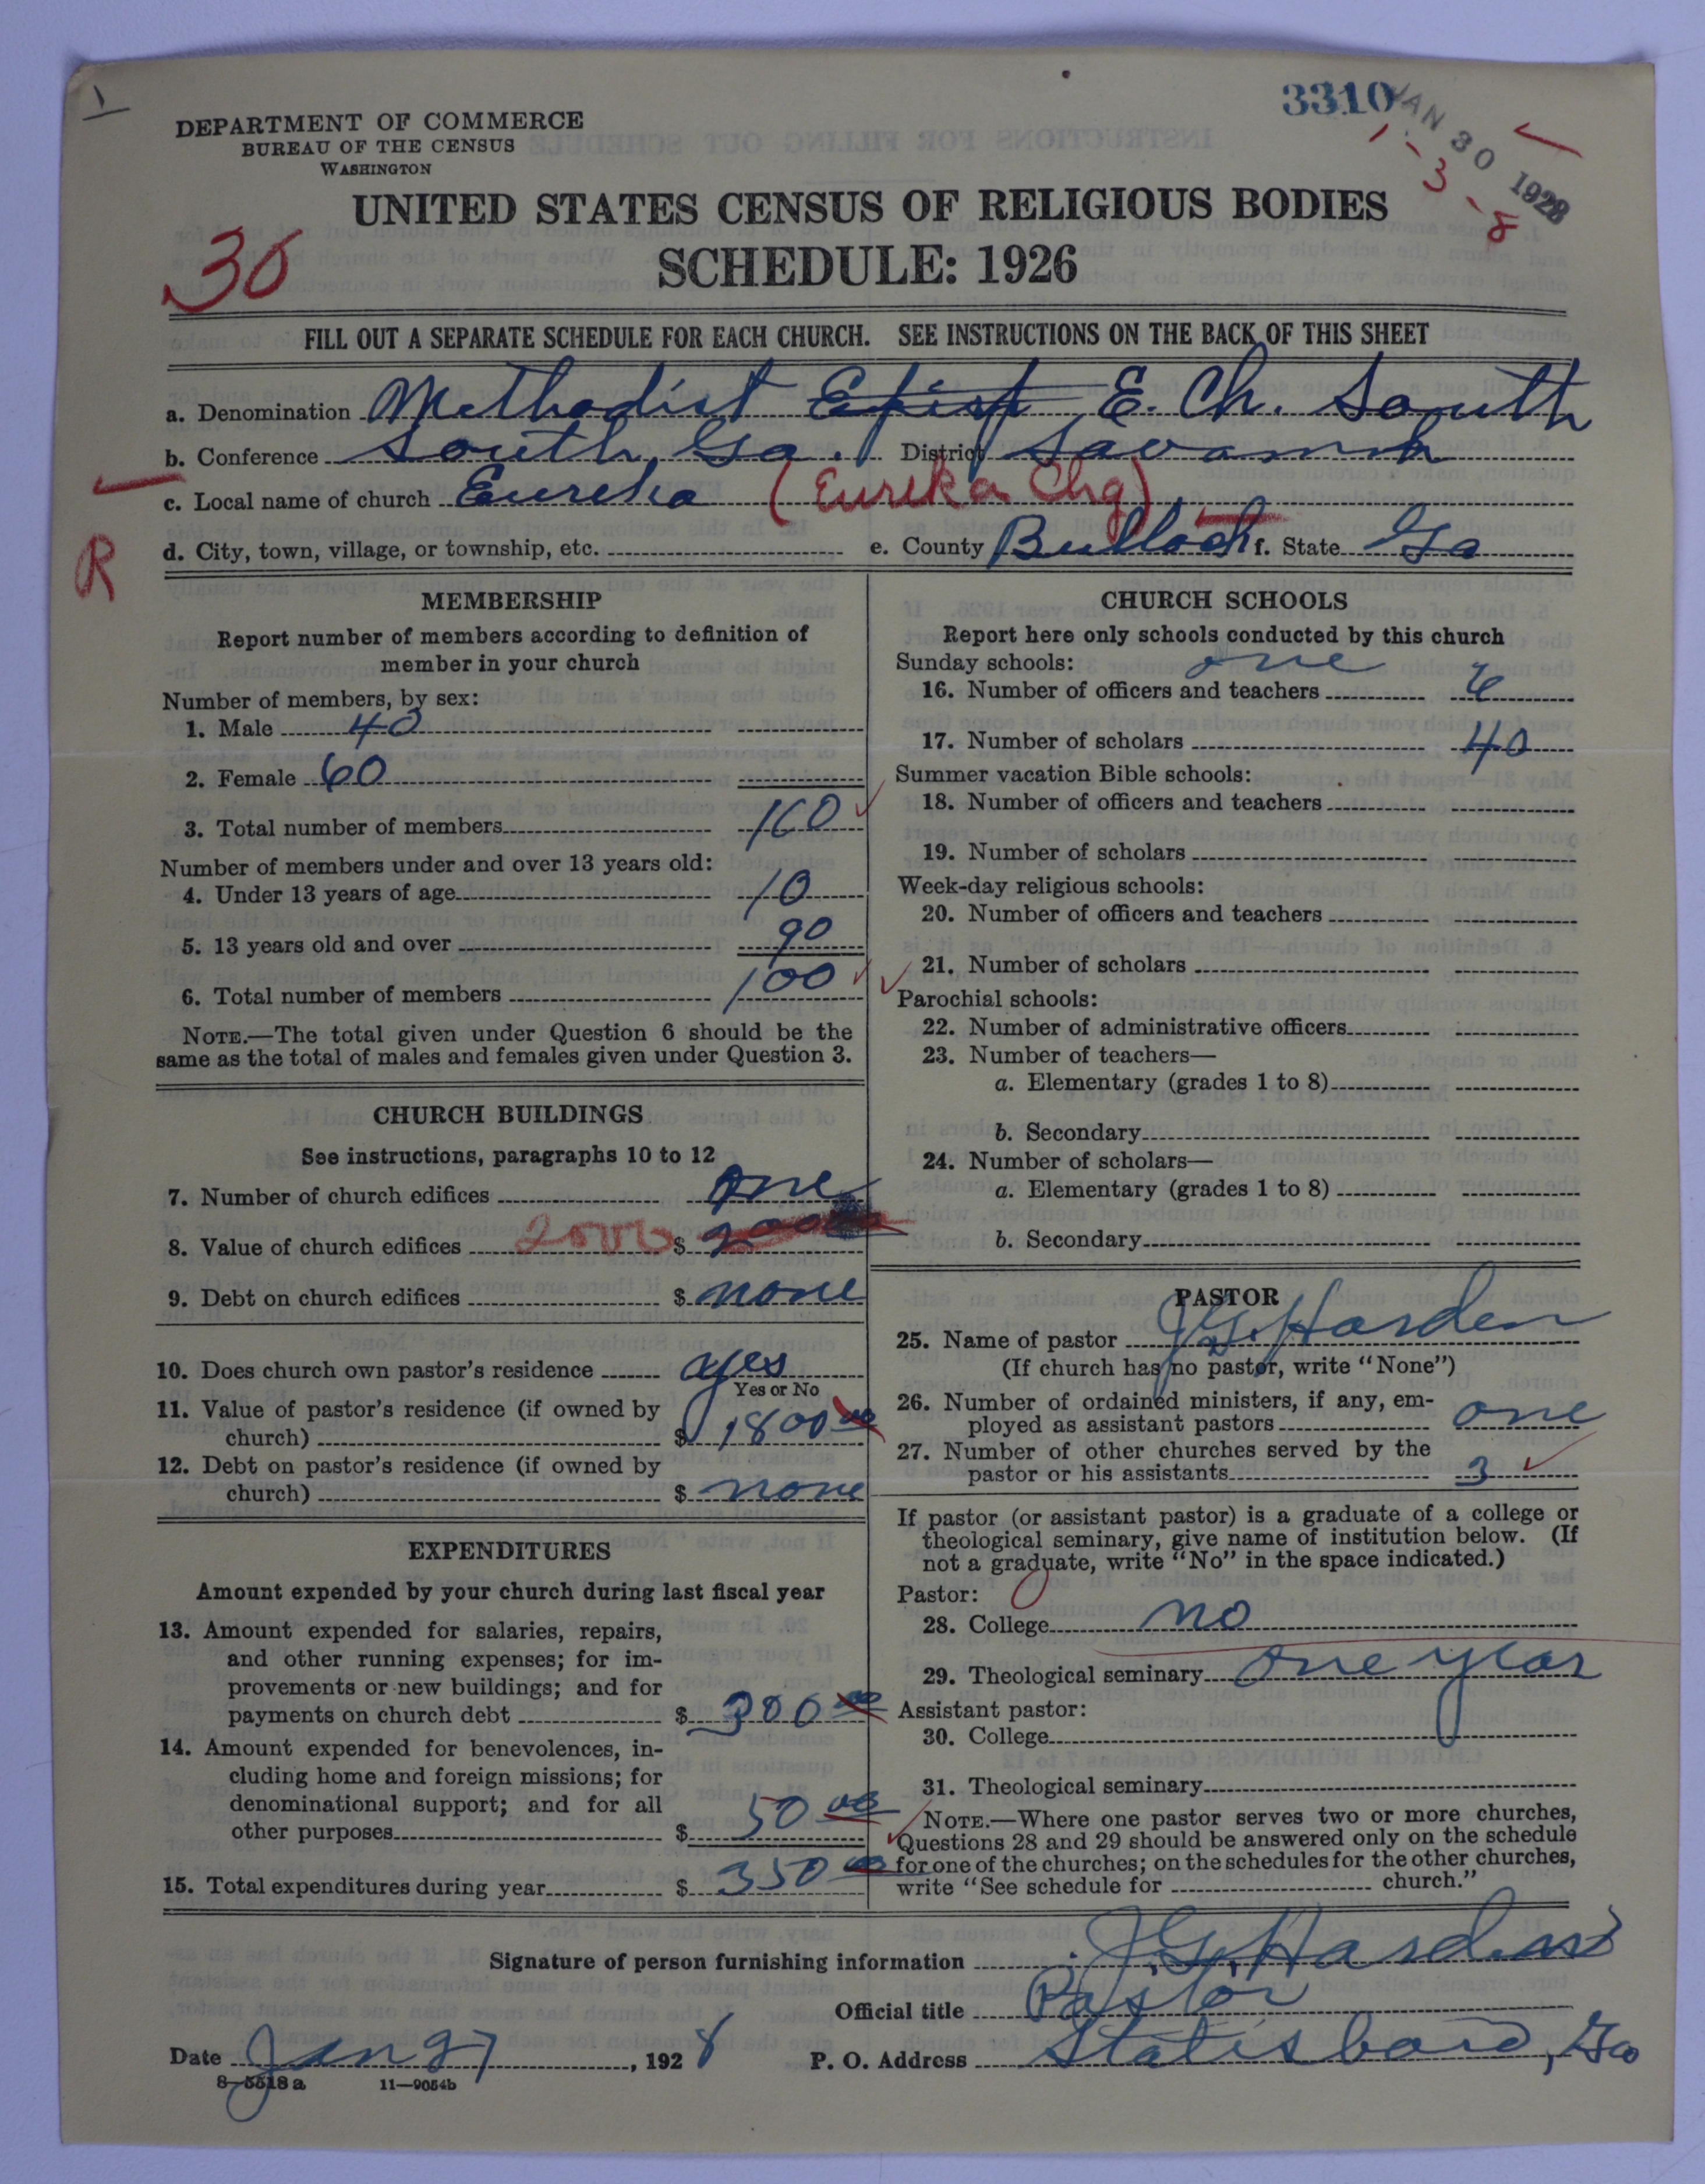 1
3310
JAN 30 1928
1-3-8
DEPARTMENT OF COMMERCE
BUREAU OF THE CENSUS
WASHINGTON
UNITED STATES CENSUS OF RELIGIOUS BODIES
SCHEDULE: 1926
30
FILL OUT A SEPARATE SCHEDULE FOR EACH CHURCH. SEE INSTRUCTIONS ON THE BACK OF THIS SHEET
a. Denomination Methodist Episp E. Ch. South
b. Conference South Ga. District Savannah
c. Local name of church Eureka (Eureka Chg)
R
d. City, town, village, or township, etc. e. County Bulloch f. State Ga
MEMBERSHIP
Report number of members according to definition of
member in your church
Number of members, by sex:
1. Male 40
2. Female 60
3. Total number of members 100
Number of members under and over 13 years old:
4. Under 13 years of age 10
5. 13 years old and over 90
6. Total number of members 100
NOTE.—The total given under Question 6 should be the
same as the total of males and females given under Question 3.
CHURCH BUILDINGS
See instructions, paragraphs 10 to 12
7. Number of church edifices one
8. Value of church edifices 2000 $ 2000
9. Debt on church edifices $ none
10. Does church own pastor's residence yes
Yes or No
11. Value of pastor's residence (if owned by
church) $ 1800 00
12. Debt on pastor's residence (if owned by
church) $ none
EXPENDITURES
Amount expended by your church during last fiscal year
13. Amount expended for salaries, repairs,
and other running expenses; for im-
provements or new buildings; and for
payments on church debt $ 300 00
14. Amount expended for benevolences, in-
cluding home and foreign missions; for
denominational support; and for all
other purposes $ 50 00
15. Total expenditures during year $ 350 00
CHURCH SCHOOLS
Report here only schools conducted by this church
Sunday schools: one
16. Number of officers and teachers 6
17. Number of scholars 40
Summer vacation Bible schools:
18. Number of officers and teachers
19. Number of scholars
Week-day religious schools:
20. Number of officers and teachers
21. Number of scholars
Parochial schools:
22. Number of administrative officers
23. Number of teachers—
a. Elementary (grades 1 to 8)
b. Secondary
24. Number of scholars—
a. Elementary (grades 1 to 8)
b. Secondary
PASTOR
25. Name of pastor J.G. Harden
(If church has no pastor, write "None")
26. Number of ordained ministers, if any, em-
ployed as assistant pastors one
27. Number of other churches served by the
pastor or his assistants 3
If pastor (or assistant pastor) is a graduate of a college or
theological seminary, give name of institution below. (If
not a graduate, write "No" in the space indicated.)
Pastor:
28. College no
29. Theological seminary one year
Assistant pastor:
30. College
31. Theological seminary
NOTE.—Where one pastor serves two or more churches,
Questions 28 and 29 should be answered only on the schedule
for one of the churches; on the schedules for the other churches,
write "See schedule for church."
Signature of person furnishing information J.G. Harden
Official title Pastor
Date Jan 27, 1928 P. O. Address Statesboro, Ga
8-5518 a 11—9054b